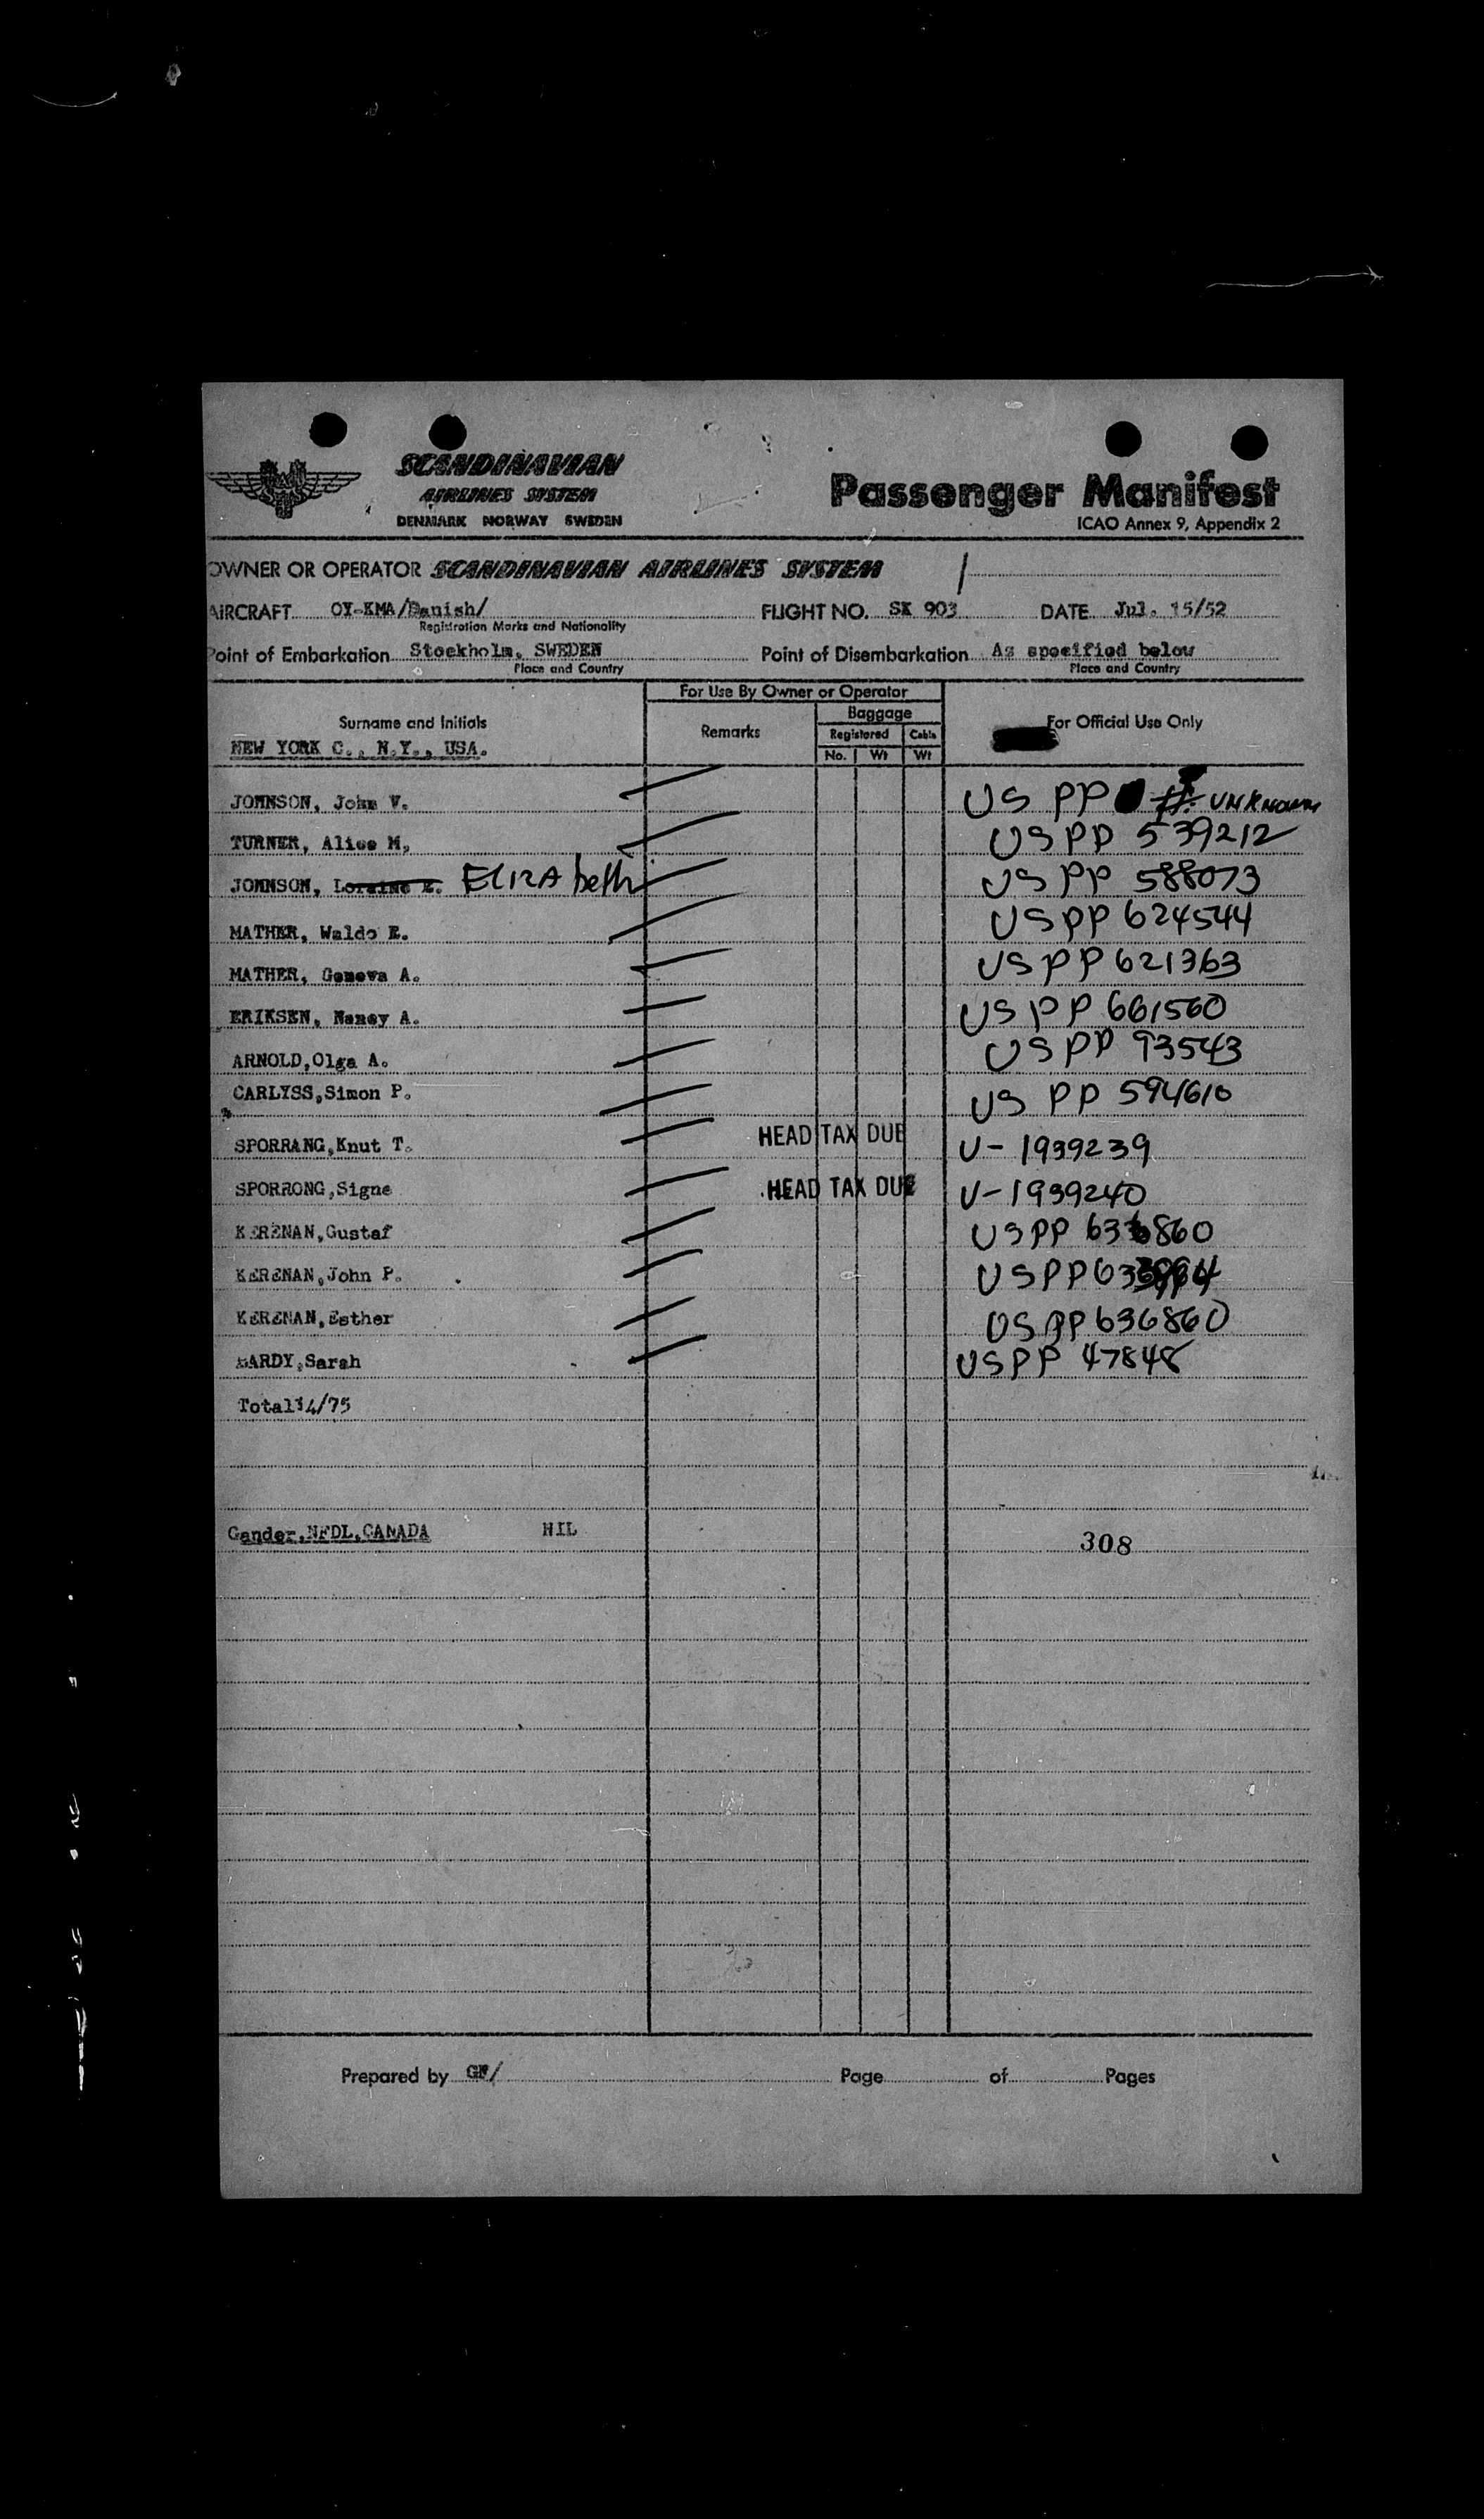 SCANDINAVIAN
AIRLINES SYSTEM
DENMARK NORWAY SWEDEN
Passenger Manifest
ICAO Annex 9, Appendix 2
OWNER OR OPERATOR SCANDINAVIAN AIRLINES SYSTEM
AIRCRAFT OY-KMA/Danish/ FLIGHT NO. SK 903 DATE Jul. 15/52
Registration Marks and Nationality
Point of Embarkation Stockholm, SWEDEN Point of Disembarkation As specified below
Place and Country Place and Country
For Use By Owner or Operator
Surname and Initials Remarks Baggage For Official Use Only
Registered Cabin
No. Wt Wt
NEW YORK C., N.Y., USA.
JOHNSON, John V. US PP #. UNKNOWN
TURNER, Alice M. US PP 539212
JOHNSON, Loraine E. ELIZAbeth US PP 588073
MATHER, Waldo E. US PP 624544
MATHER, Geneva A. US PP 621363
ERIKSEN, Nancy A. US PP 661560
ARNOLD,Olga A. US PP 93543
CARLYSS,Simon P. US PP 594610
SPORRANG,Knut T. HEAD TAX DUE V- 1939239
SPORRONG,Signe HEAD TAX DUE V-1939240
KERENAN,Gustaf US PP 636860
KERENAN,John P. US PP
KERENAN,Esther US PP 636860
HARDY,Sarah US PP 47848
Total14/75
Gander,NFDL,CANADA NIL
308
Prepared by GF/ Page of Pages